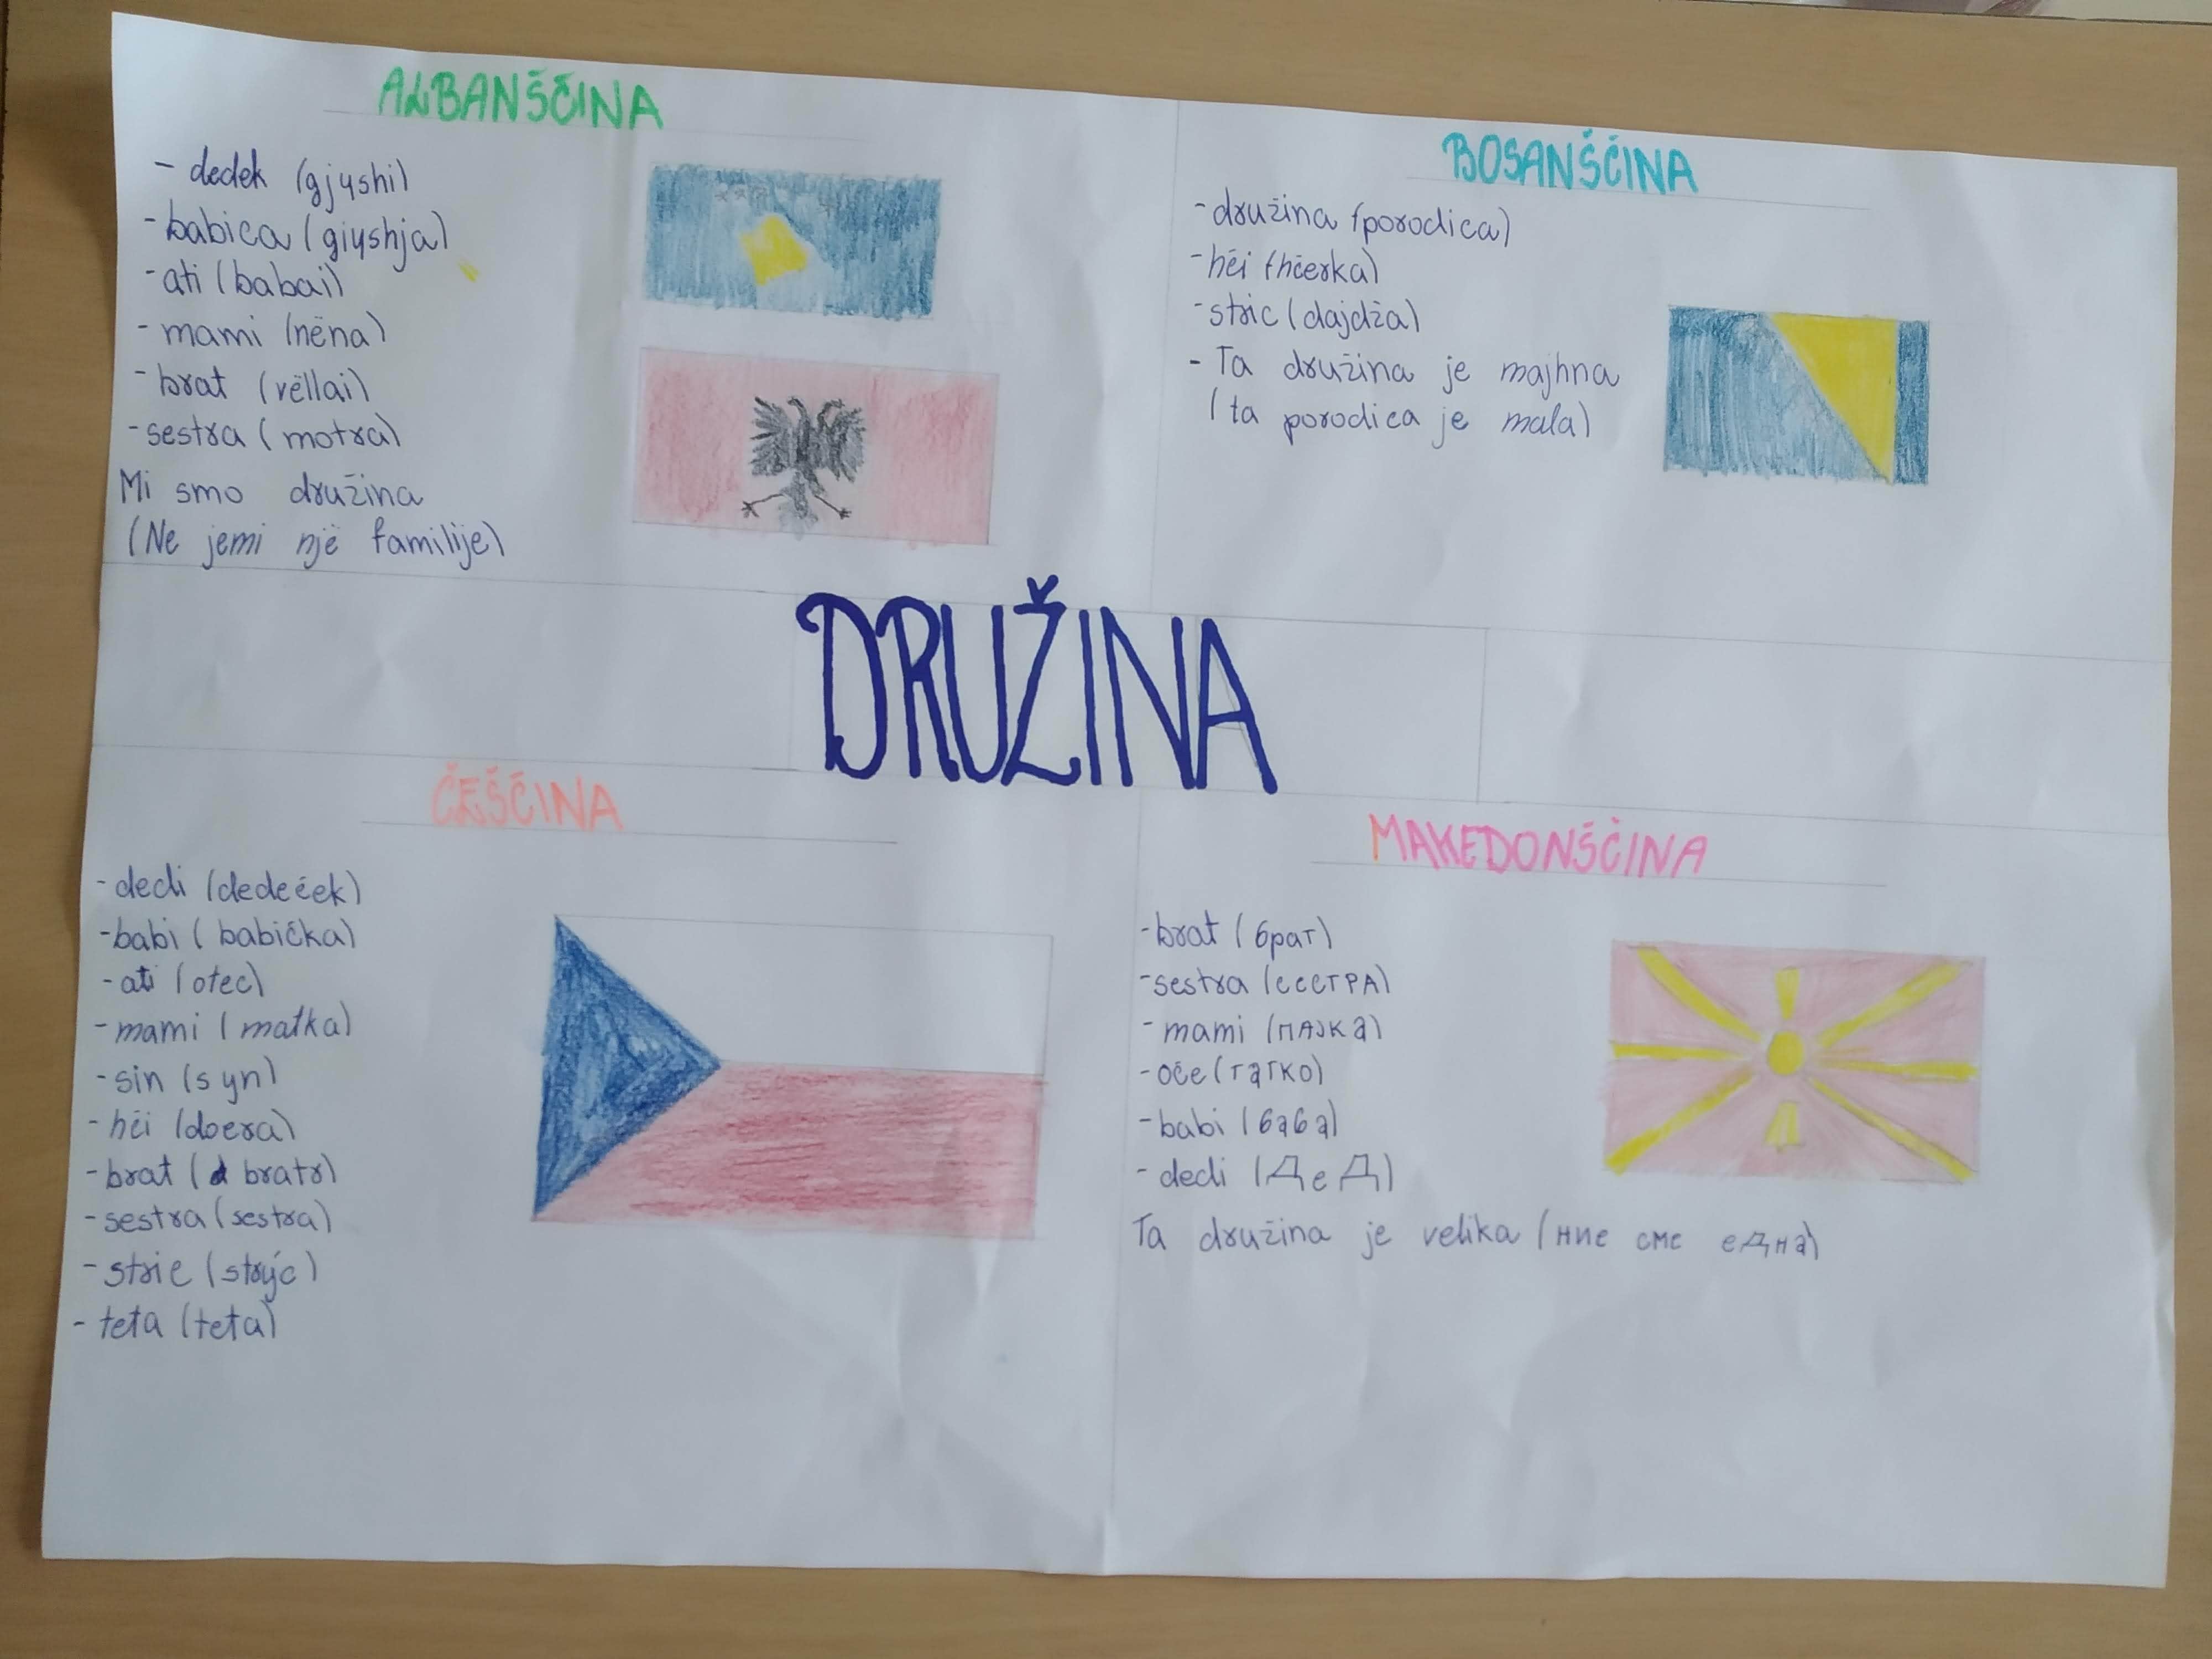 ALBANŠČINA
- dedek (gjyshi)
- babica (giyshja)
- ati (babai)
- mami (nëna)
- brat (vëllai)
- sestra (motra)
Mi smo družina
(Ne jemi një familije)
BOSANŠČINA
- družina (porodica)
- hči (hčerka)
- stric (dajdža)
- Ta družina je majhna
(ta porodica je mala)
DRUŽINA
ČEŠČINA
- dedi (dedeček)
- babi (babička)
- ati (otec)
- mami (matka)
- sin (syn)
- hči (dcera)
- brat (bratr)
- sestra (sestra)
- stric (strýc)
- teta (teta)
MAKEDONŠČINA
- brat (брат)
- sestra (сестРА)
- mami (пАЈКа)
- oče (татко)
- babi (баба)
- dedi (ДеД)
Ta družina je velika (ние сме еДна)